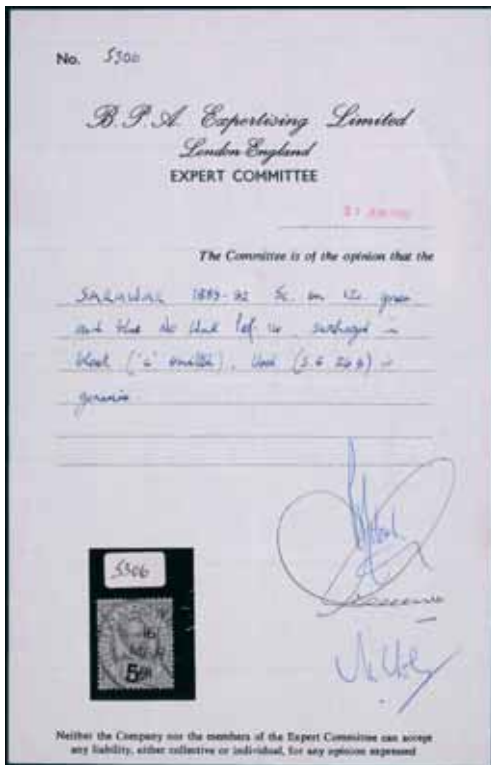 No. 5306
B.P.A. Expertising Limited
London England
EXPERT COMMITTEE
The Committee is of the opinion that the
SARAWAK 1889-92 5c. on 12c. green
and blue No Wmk Perf. 14 surcharged in
black ('c' omitted), used (S.G 26 b) is
genuine.
5306
5
Neither the Company nor the members of the Expert Committee can accept
any liability, either collective or individual, for any opinion expressed